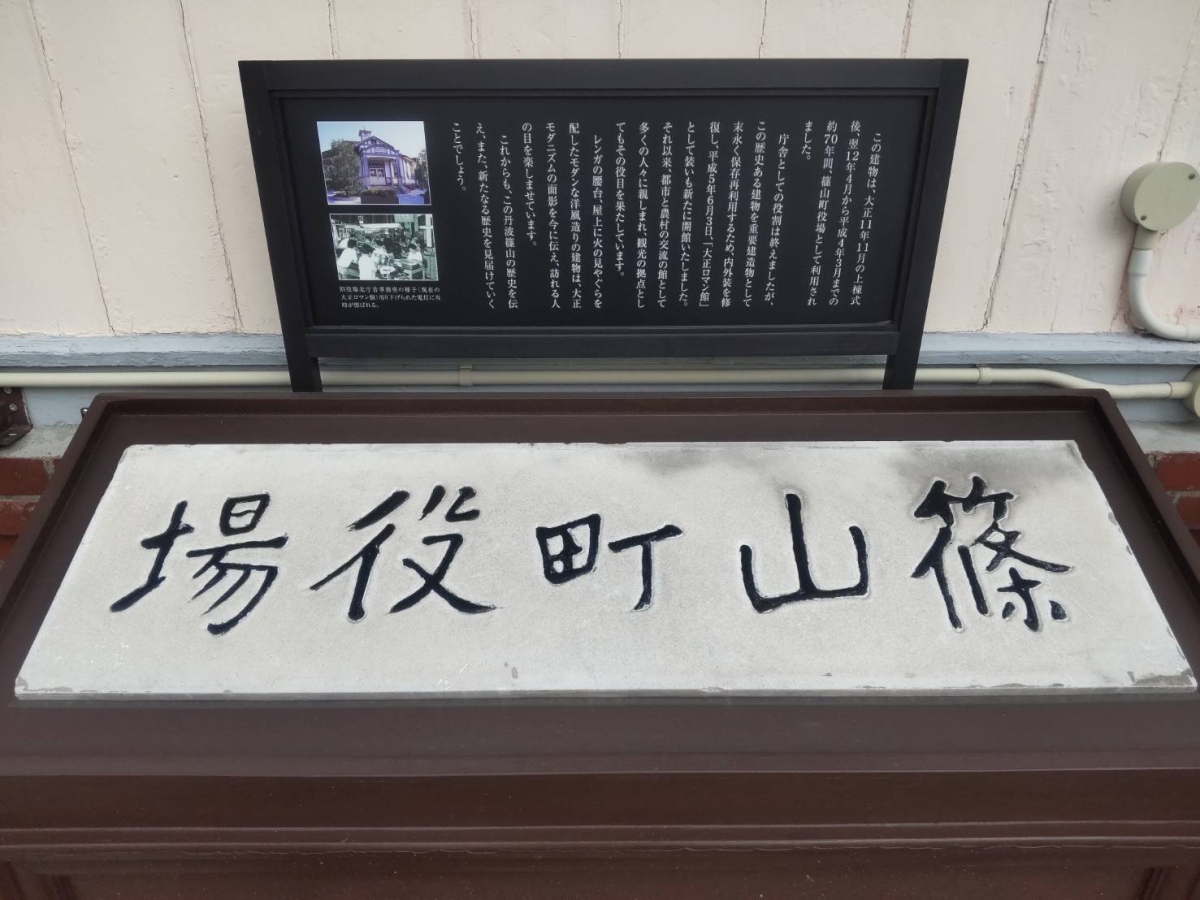 この建物は、大正11年11月の上棟式
後、翌12年4月から平成4年3月までの
約70年間、篠山町役場として利用され
ました。
庁舎としての役割は終えましたが、
この歴史ある建物を重要建造物として
末永く保存再利用するため、内外装を修
復し、平成5年6月3日、「大正ロマン館」
として装いも新たに開館いたしました。
それ以来、都市と農村の交流の館として
多くの人々に親しまれ、観光の拠点とし
てもその役目を果たしています。
レンガの腰台、屋上に火の見やぐらを
配したモダンな洋風造りの建物は、大正
モダニズムの面影を今に伝え、訪れる人
の目を楽しませています。
これからも、この丹波篠山の歴史を伝
え、また、新たなる歴史を見届けていく
ことでしょう。
旧役場北庁舎事務室の様子（現在の
大正ロマン館）吊り下げられた電灯に当
時が偲ばれる。
場役町山篠